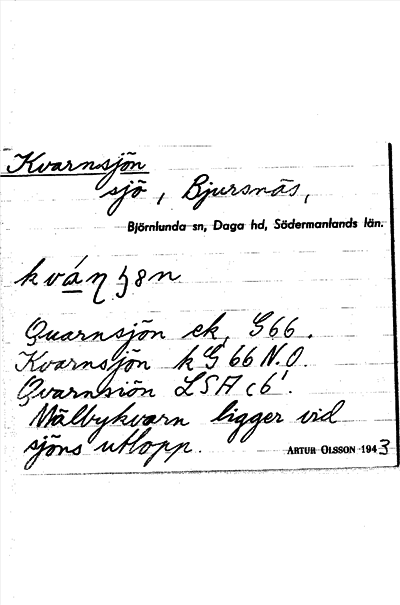 Kvarnsjön
sjö, Bjursnäs,
Björnlunda sn, Daga hd, Södermanlands län.
Quarnsjön ek, G66.
Kvarnsjön k G 66 N.O.
Qvarnsiön LSA c6'.
Mälbykvarn ligger vid
sjöns utlopp.
ARTUR OLSSON 1943